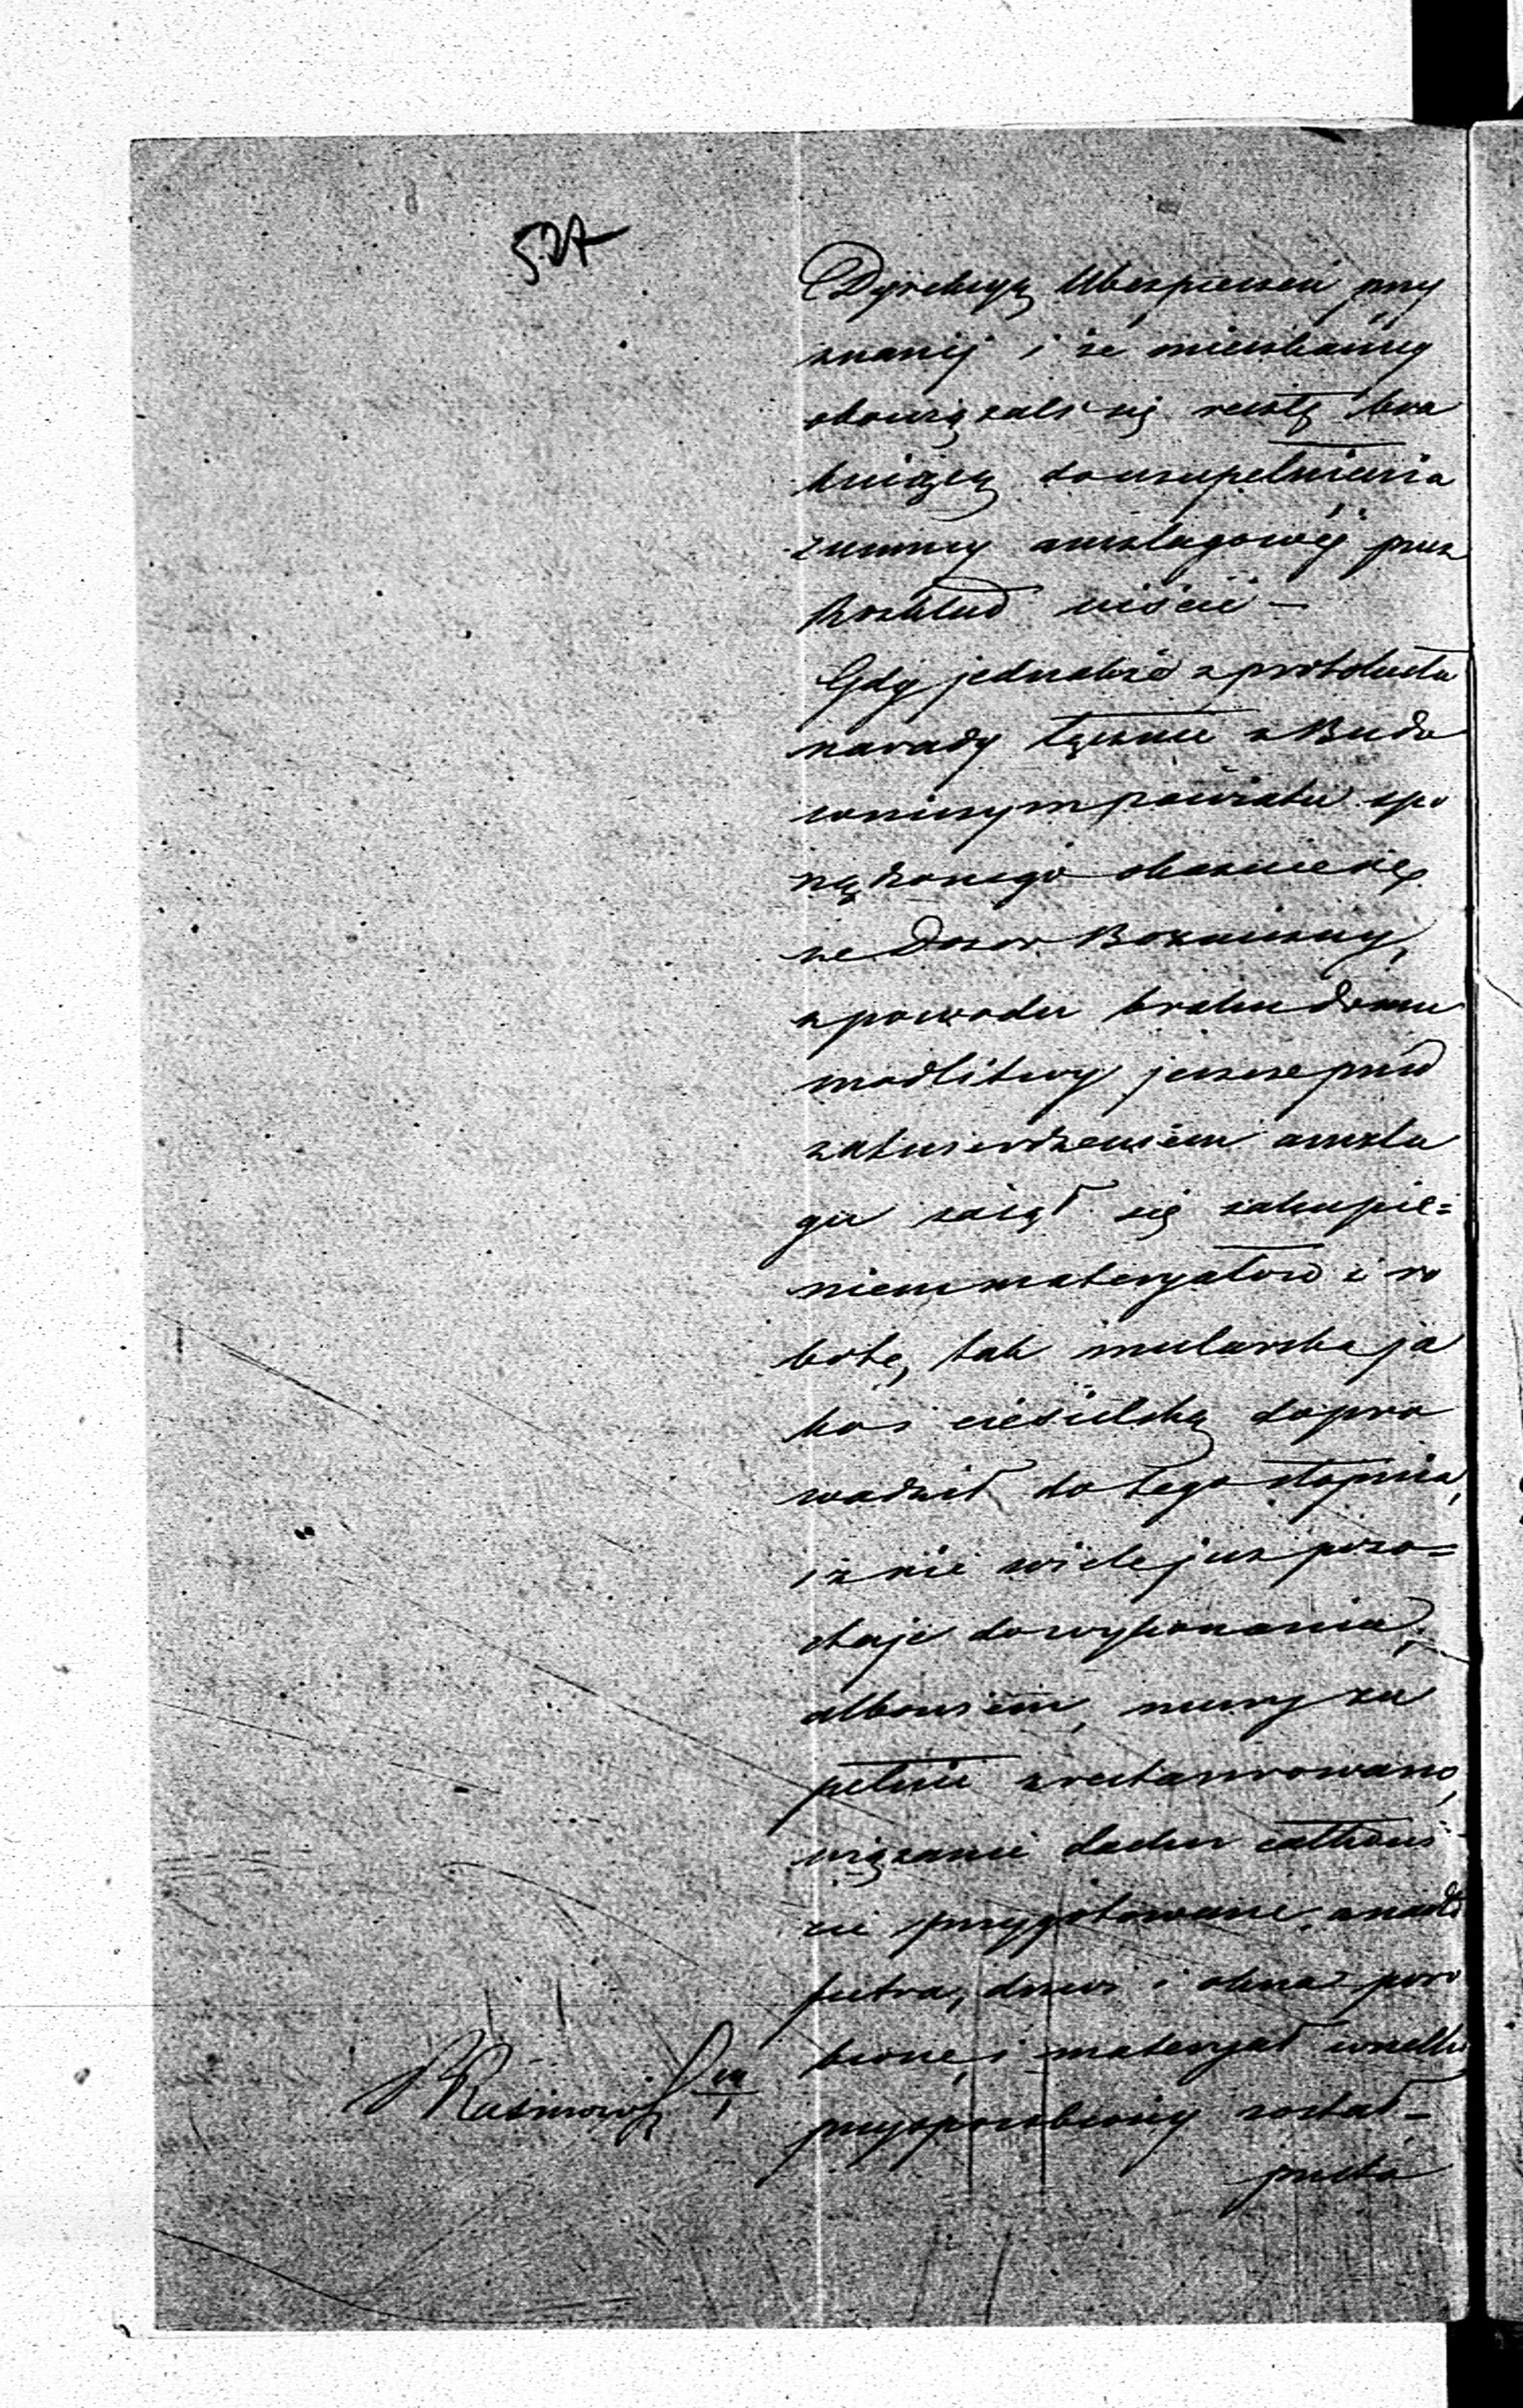 527
Dyrekcyą Ubezpieczeń przy
znanéj i że mieszkańcy
obowiązali się resztę bra
kującą do uzupełnienia
summy anszlagowéj przez
Rozkład uiścić –
Gdy jednakże z protokułu
narady łącznie z Budo
wniczym powiatu spo
rządzonego okazuie się
że Dozor Bożniczny,
z powodu braku domu
modlitwy jeszcze przed
zatwierdzeniem anszla
gu zaiął się zakupie=
niem materyałów i ro
botę, tak mularską ja
koś ciesielską dopro
wadził do tego stopnia,
iż nie wiele już pozo=
staje do wykonania,
albowiem, mury zu
pełnie zrestaurowano,
wiązanie dachu całkowi
cie przygotowane, a nadto
futra, drzwi i okna poro
bione, i materyał wszelki
przysposobiony został –
przeto